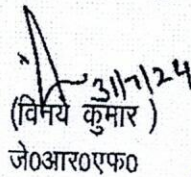 31/7/24
(विनय कुमार )
जे0आर0एफ0